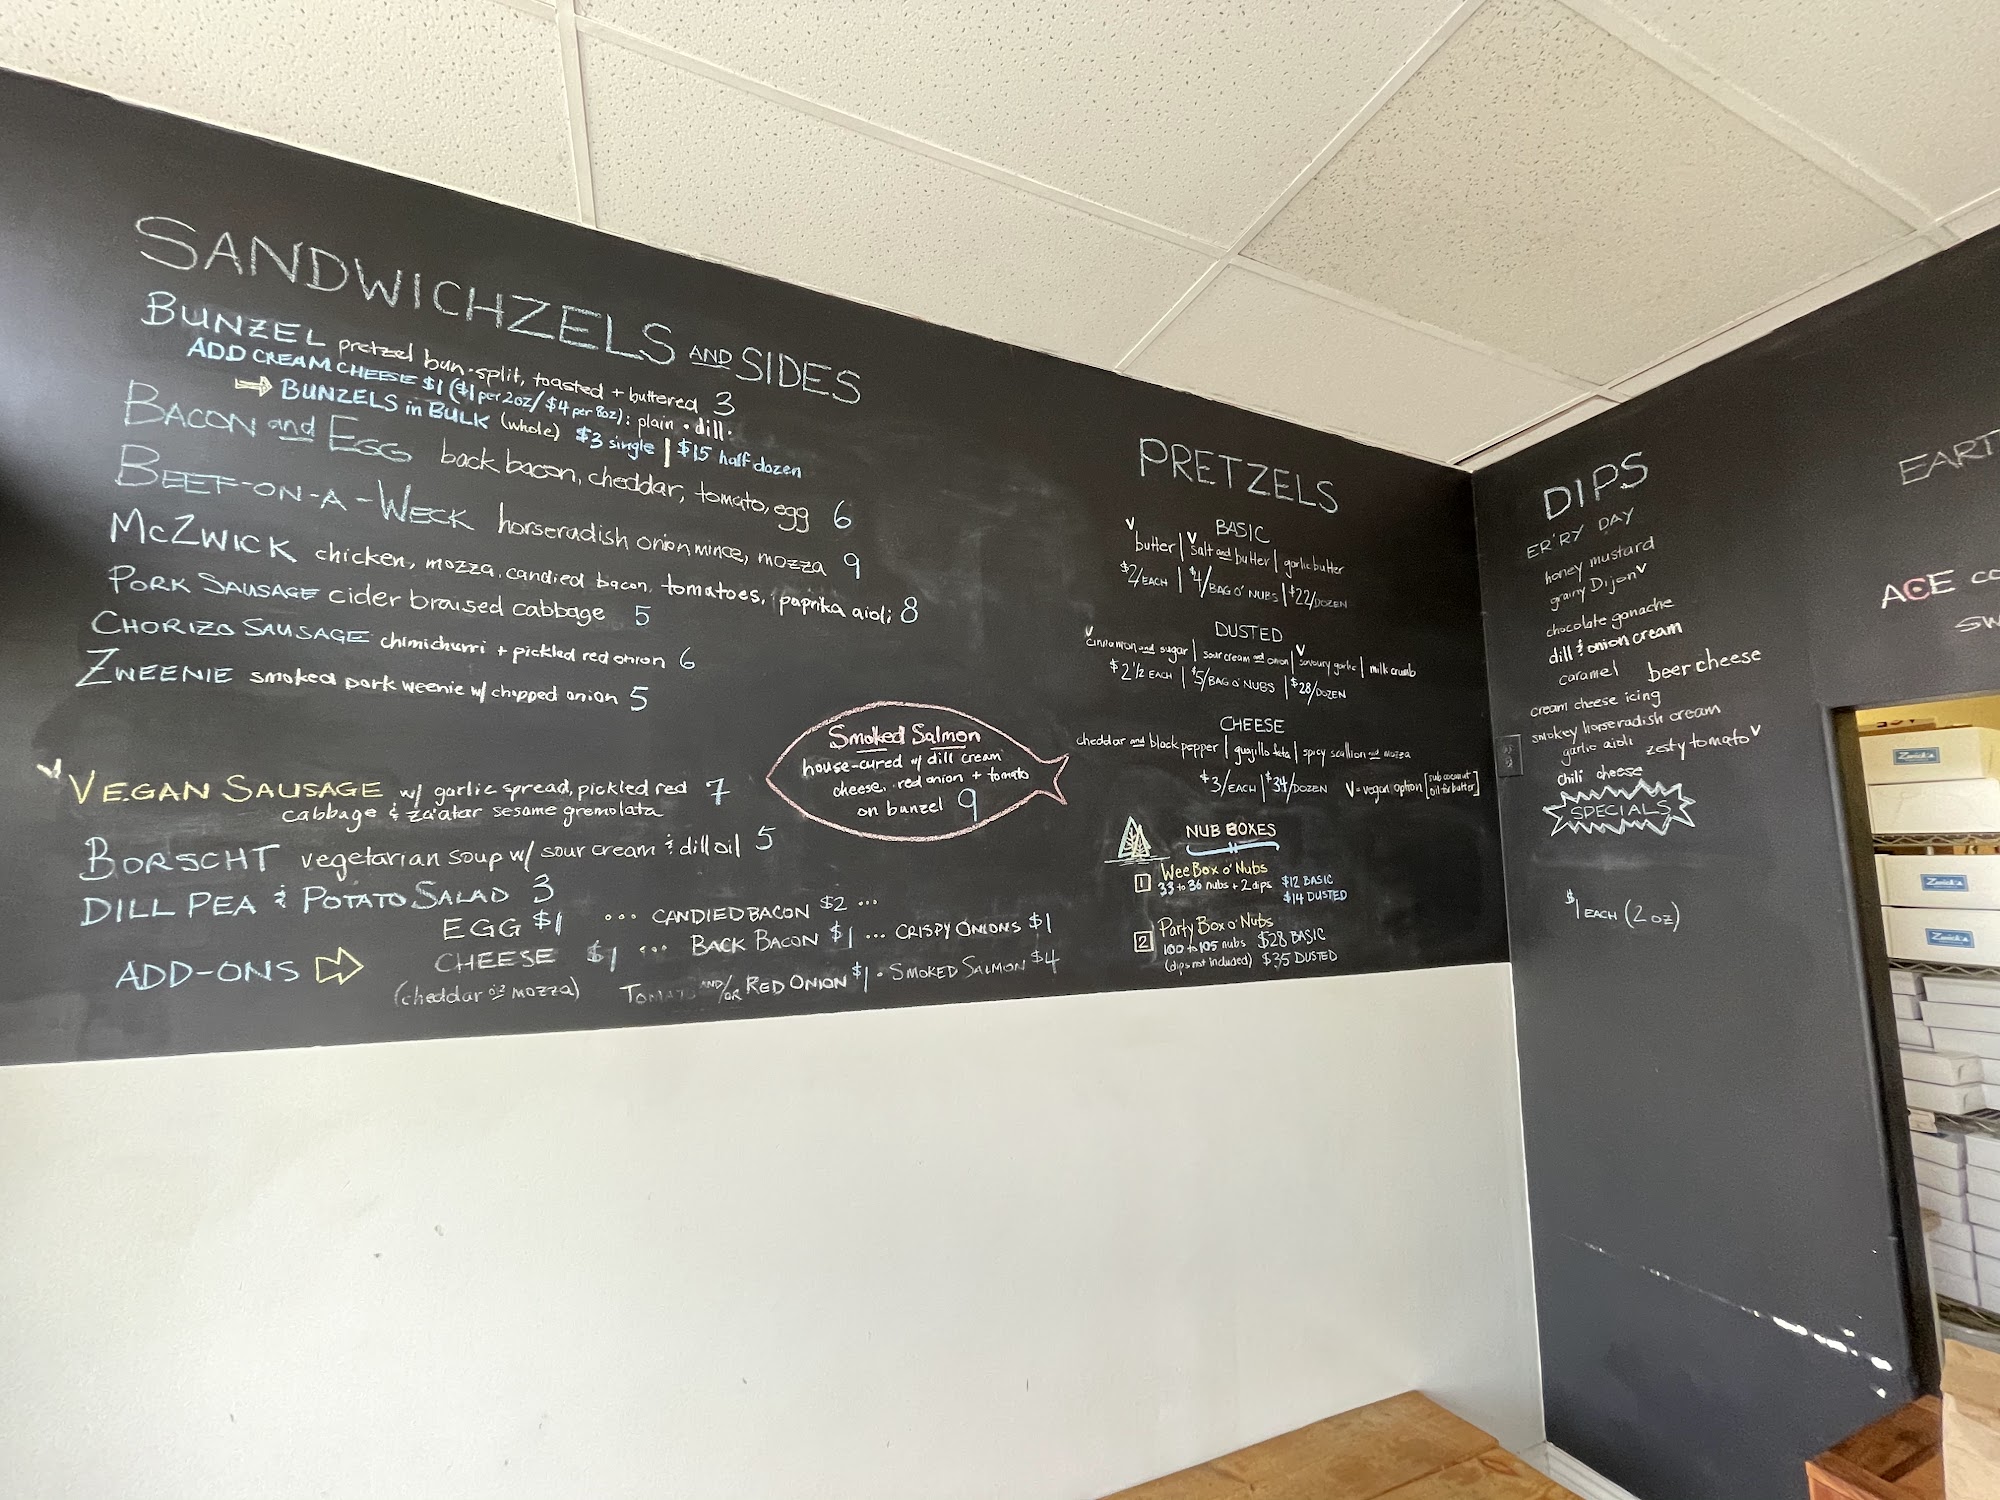 SANDWICHZELS AND SIDES
BUNZEL pretzel bun · split, toasted + buttered 3
ADD CREAM CHEESE $1 ($1 per 2oz/ $4 per 8oz): plain · dill ·
BUNZELS in BULK (whole) $3 single | $15 half dozen
BACON and EGG back bacon, cheddar, tomato, egg 6
BEEF-ON-A-WECK horseradish onion mince, mozza 9
MCZWICK chicken, mozza, candied bacon, tomatoes, paprika aioli 8
PORK SAUSAGE cider braised cabbage 5
CHORIZO SAUSAGE chimichurri + pickled red onion 6
ZWEENIE smoked pork weenie w/ chopped onion 5
V VEGAN SAUSAGE w/ garlic spread, pickled red 7
cabbage & za'atar sesame gremolata
BORSCHT vegetarian soup w/ sour cream & dill oil 5
DILL PEA & POTATO SALAD 3
ADD-ONS
EGG $1 ... CANDIED BACON $2 ...
CHEESE $1 ... BACK BACON $1 ... CRISPY ONIONS $1
(cheddar or mozza) TOMATO AND/OR RED ONION $1 · SMOKED SALMON $4
Smoked Salmon
house-cured w/ dill cream
cheese, red onion + tomato
on bunzel 9
PRETZELS
BASIC
V butter | V salt and butter | garlic butter
$2/EACH | $4/BAG O' NUBS | $22/DOZEN
DUSTED
V cinnamon and sugar | sour cream and onion | V savoury garlic | milk crumb
$2 1/2 EACH | $5/BAG O' NUBS | $28/DOZEN
CHEESE
cheddar and black pepper | guajillo feta | spicy scallion and mozza
$3/EACH | $34/DOZEN V = vegan option [sub coconut
oil for butter]
NUB BOXES
1 Wee Box o' Nubs
33 to 36 nubs + 2 dips $12 BASIC
$14 DUSTED
2 Party Box o' Nubs
100 to 105 nubs $28 BASIC
(dips not included) $35 DUSTED
DIPS
ER'RY DAY
honey mustard
grainy Dijon V
chocolate ganache
dill & onion cream
caramel beer cheese
cream cheese icing
smokey horseradish cream
garlic aioli zesty tomato V
chili cheese
SPECIALS
$1 EACH (2 oz)
EART
ACE CO
SW
Zwick's
Zwick's
Zwick's